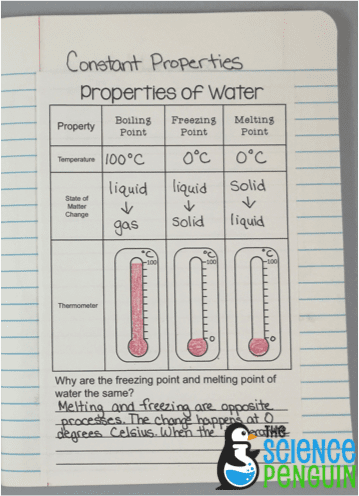 Constant Properties
Properties of Water
Property Boiling Point Freezing Point Melting Point
Temperature 100°C 0°C 0°C
State of Matter Change liquid ↓ gas liquid ↓ solid solid ↓ liquid
Thermometer °C 100 0 °C 100 0 °C 100 0
Why are the freezing point and melting point of
water the same?
Melting and freezing are opposite
processes. The change happens at 0
degrees Celsius. When the
THE
SCIENCE
PENGUIN